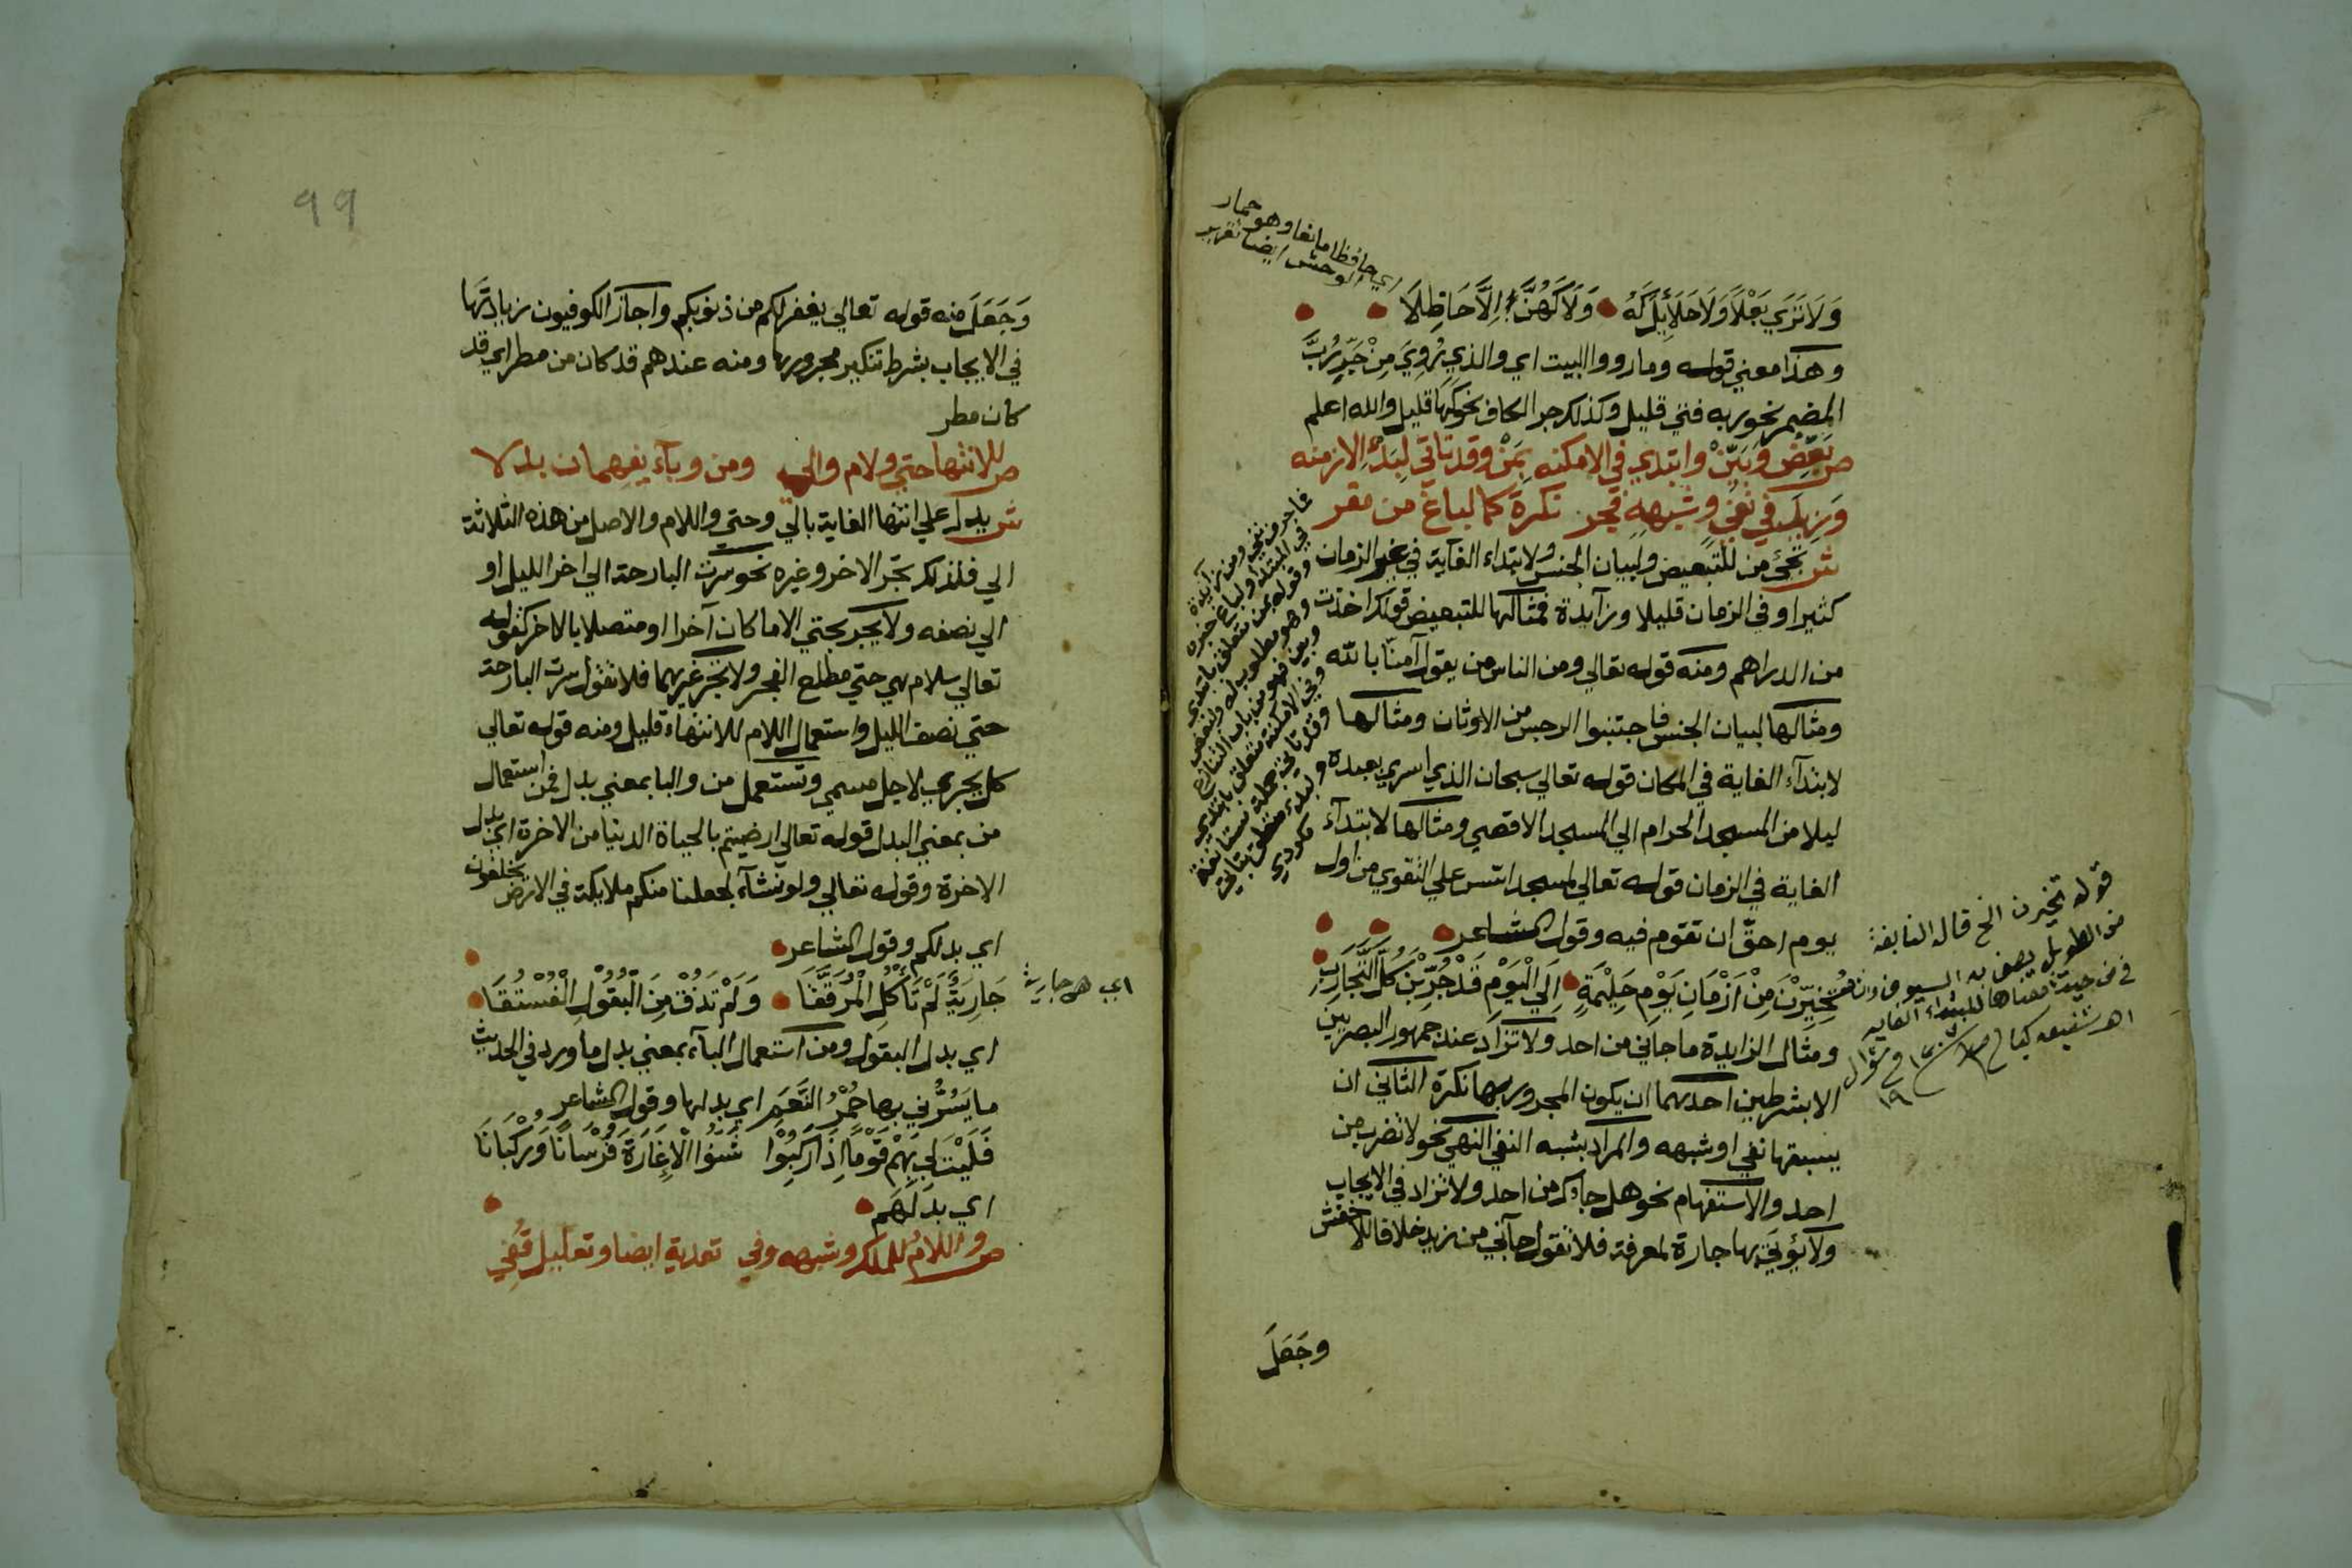 وَلَا تَرَي بَعْلًا وَلَا حَلَائِلَ كَهُ وَلَا كَهُنَّ اِلَّا حَاظِلَا
وهذا معني قوله وما رووا البيت اي والذي رُوِيَ مِنْ جَرِّ رُبَّ
المضمر نحو ربه فتي قليل وكذلك جر الكاف نحو كها قليل والله اعلم
ص بَعِّضْ وَبَيِّنْ وابتدي في الامكنه بِمَنْ وقد تاتي لِبَدْءِ الازمنه
وَزِيدَ في نفي وشبهه فجر نكرة كما لباغ من مفر
ش تجئ من للتبعيض ولبيان الجنس ولابتداء الغاية في غير الزمان
كثيرا وفي الزمان قليلا وزآيدة فمثالها للتبعيض قولك اخذت
من الدراهم ومنه قوله تعالي ومن الناس من يقول آمنا بالله
ومثالها لبيان الجنس فاجتنبوا الرجس من الاوثان ومثالها
لابتدآء الغاية في المكان قوله تعالي سبحان الذي اسري بعبده
ليلا من المسجد الحرام الي المسجد الاقصي ومثالها لابتدآء
الغاية في الزمان قوله تعالي لمسجد اسس علي التقوي من اول
يوم احقّ ان تقوم فيه وقول الشاعر
تُخُيِّرْنَ مِنْ اَزْمَانِ يَوْمِ حَلِيْمَةٍ اِلَي الْيَوْمِ قَدْ جُرِّبْنَ كُلَّ التَّجَارِبِ
ومثال الزايدة ما جاني من احد ولا تزاد عند جمهور البصريين
الا بشرطين احدهما ان يكون المجرور بها نكرة الثاني ان
يسبقها نفي او شبهه والمراد بشبه النفي النهي نحو لا تضرب من
احد والاستفهام نحو هل جاءك من احد ولا تزاد في الايجاب
ولا يؤتي بها جارة لمعرفة فلا تقول جآني من زيد خلافا للاخفش
وجَعَلَ
اي حافظا مانعا وهو حمار
الوحش ايضا تقرير
قوله تخيرن الخ قال النابغة
من الطويل يصف به السيوف
٩٩
وَجَعَلَ منه قوله تعالي يغفر لكم من ذنوبكم واجاز الكوفيون زيادتَها
في الايجاب بشرط تنكير مجرورها ومنه عندهم قد كان من مطر اي قد
كان مطر
ص للانتها حتي ولام والي ومن وبآء يفهمان بدلا
ش يدل علي انتها الغاية بالي وحتي واللام والاصل من هذه الثلاثة
الي فلذلك تجر الاخر وغيره نحو سرت البارحة الي اخر الليل او
الي نصفه ولا يجر بحتي الا ما كان آخرا او متصلا بالاخر كقوله
تعالي سلام هي حتي مطلع الفجر ولا تجر غيرهما فلا تقول سرت البارحة
حتي نصف الليل واستعمال اللام للانتهاء قليل ومنه قوله تعالي
كل يجري لاجل مسمي وتستعمل من والبا بمعني بدل فمن استعمال
من بمعني البدل قوله تعالي ارضيتم بالحياة الدنيا من الاخرة اي بدل
الاخرة وقوله تعالي ولو نشآء لجعلنا منكم ملايكة في الارض يخلفون
اي بدلكم وقول الشاعر
جَارِيَةٌ لَمْ تَأْكُلِ الْمُرَقَّقَا وَلَمْ تَذُقْ مِنَ الْبُقُوْلِ الْفُسْتُقَا
اي هي جارية
اي بدل البقول ومن استعمال البآء بمعني بدل ما ورد في الحديث
ما يَسُرُّني بها حُمْرُ النَّعَمِ اي بدلها وقول الشاعر
فَلَيْتَ لِي بِهِمْ قَوْمًا اِذَا رَكِبُوْا شَنُّوا الْاِغَارَةَ فُرْسَانًا وَرُكْبَانَا
اي بَدَلَهُم
ص واللامُ للملك وشبهه وفي تعدية ايضا وتعليل قُفِي